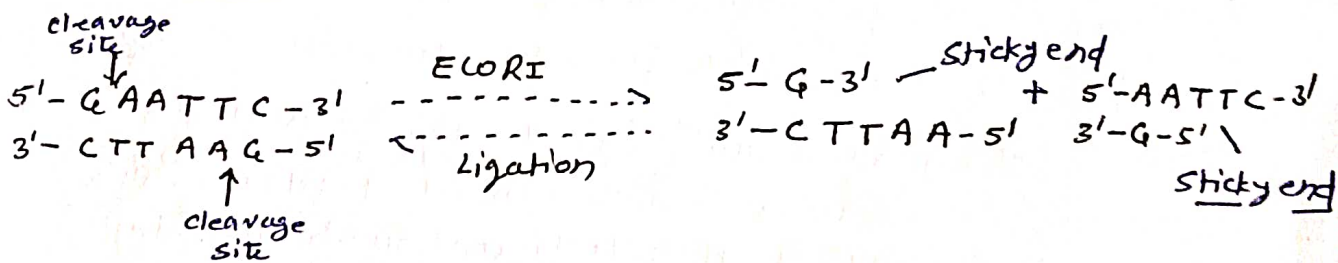 cleavage
site
5'-GAATTC-3'
3'-CTTAAG-5'
cleavage
site
ECORI
Ligation
5'-G-3'
3'-CTTAA-5'
Sticky end
+
5'-AATTC-3'
3'-G-5'
Sticky end